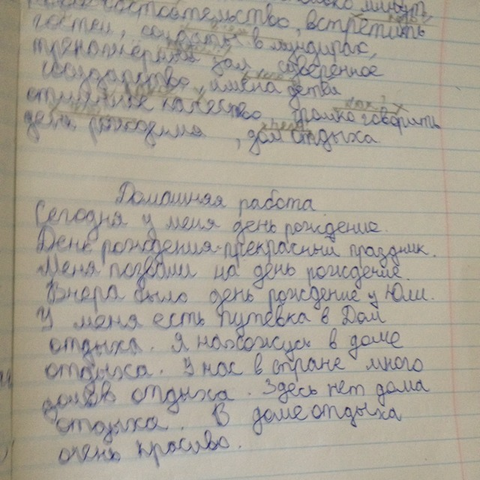 минут,
встретить
гостей, солдаты в мундирах,
тренажерный зал, суверенное
государство, имена детей
отличное качество, громко говорить
день рождения, дом отдыха
Домашняя работа.
Сегодня у меня день рождение.
День рождения-прекрасный праздник.
Меня позвали на день рождение.
Вчера было день рождение у Юли.
У меня есть путевка в Дом
отдыха. Я нахожусь в доме
отдыха. У нас в стране много
домов отдыха. Здесь нет дома
отдыха. В доме отдыха
очень красиво.